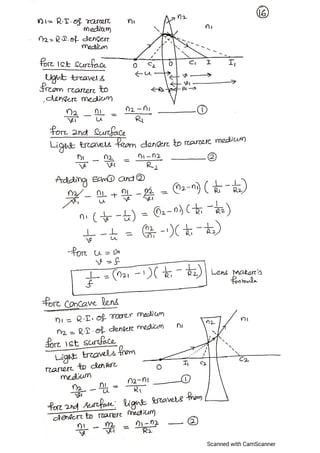 16
n1 = R.I. of rarer medium
n2 = R.I. of denser medium
n1 n2 n1
O C2 O C1 I I1
u
v
v1
for 1st Surface
Light travels from rarer to denser medium
n2/v1 - n1/u = (n2-n1)/R1 — ①
for 2nd Surface
Light travels from denser to rarer medium
n1/v - n2/v1 = (n1-n2)/R2 — ②
Adding Eqn① and ②
n2/v1 - n1/u + n1/v - n2/v1 = (n2-n1)(1/R1 - 1/R2)
n1 (1/v - 1/u) = (n2-n1)(1/R1 - 1/R2)
1/v - 1/u = (n2/n1 - 1)(1/R1 - 1/R2)
for u = ∞
v = f
1/f = (n21 - 1)(1/R1 - 1/R2) Lens Maker's formula
for Concave lens
n1 = R.I. of rarer medium
n2 = R.I. of denser medium
n1 n2 n1
for 1st surface
Light travels from
rarer to denser
medium
O I1 C2 C2
n2/v1 - n1/u = (n2-n1)/R1 — ①
for 2nd surface: light travels from
denser to rarer medium
n1/v - n2/v1 = (n1-n2)/R2 — ②
Scanned with CamScanner